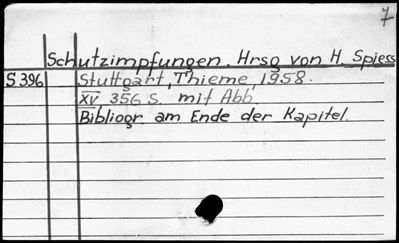 7
Schutzimpfungen. Hrsg von H. Spiess
S 396 Stuttgart, Thieme, 1958.
XV, 356 S. mit Abb
Bibliogr. am Ende der Kapitel.